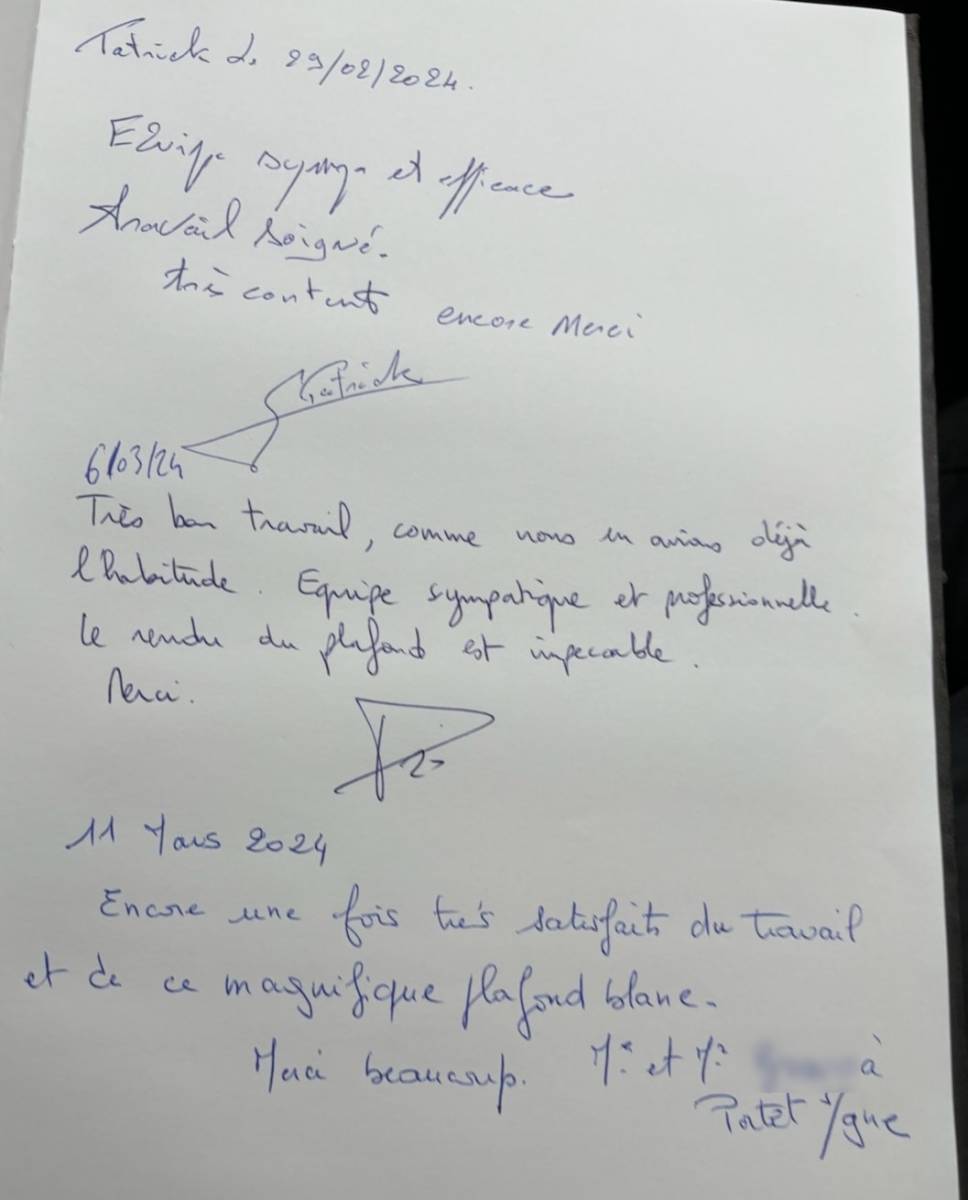 Patrick L. 29/02/2024.
Equipe sympa et efficace
travail soigné.
très contents encore Merci
Patrick
6/03/24
Très bon travail, comme nous en avions déjà
l'habitude. Equipe sympatique et professionnelle.
Le rendu du plafond est impecable.
Merci.
11 Mars 2024
Encore une fois très satisfaits du travail
et de ce magnifique plafond blanc.
Merci beaucoup. Mr et Me à
Portet